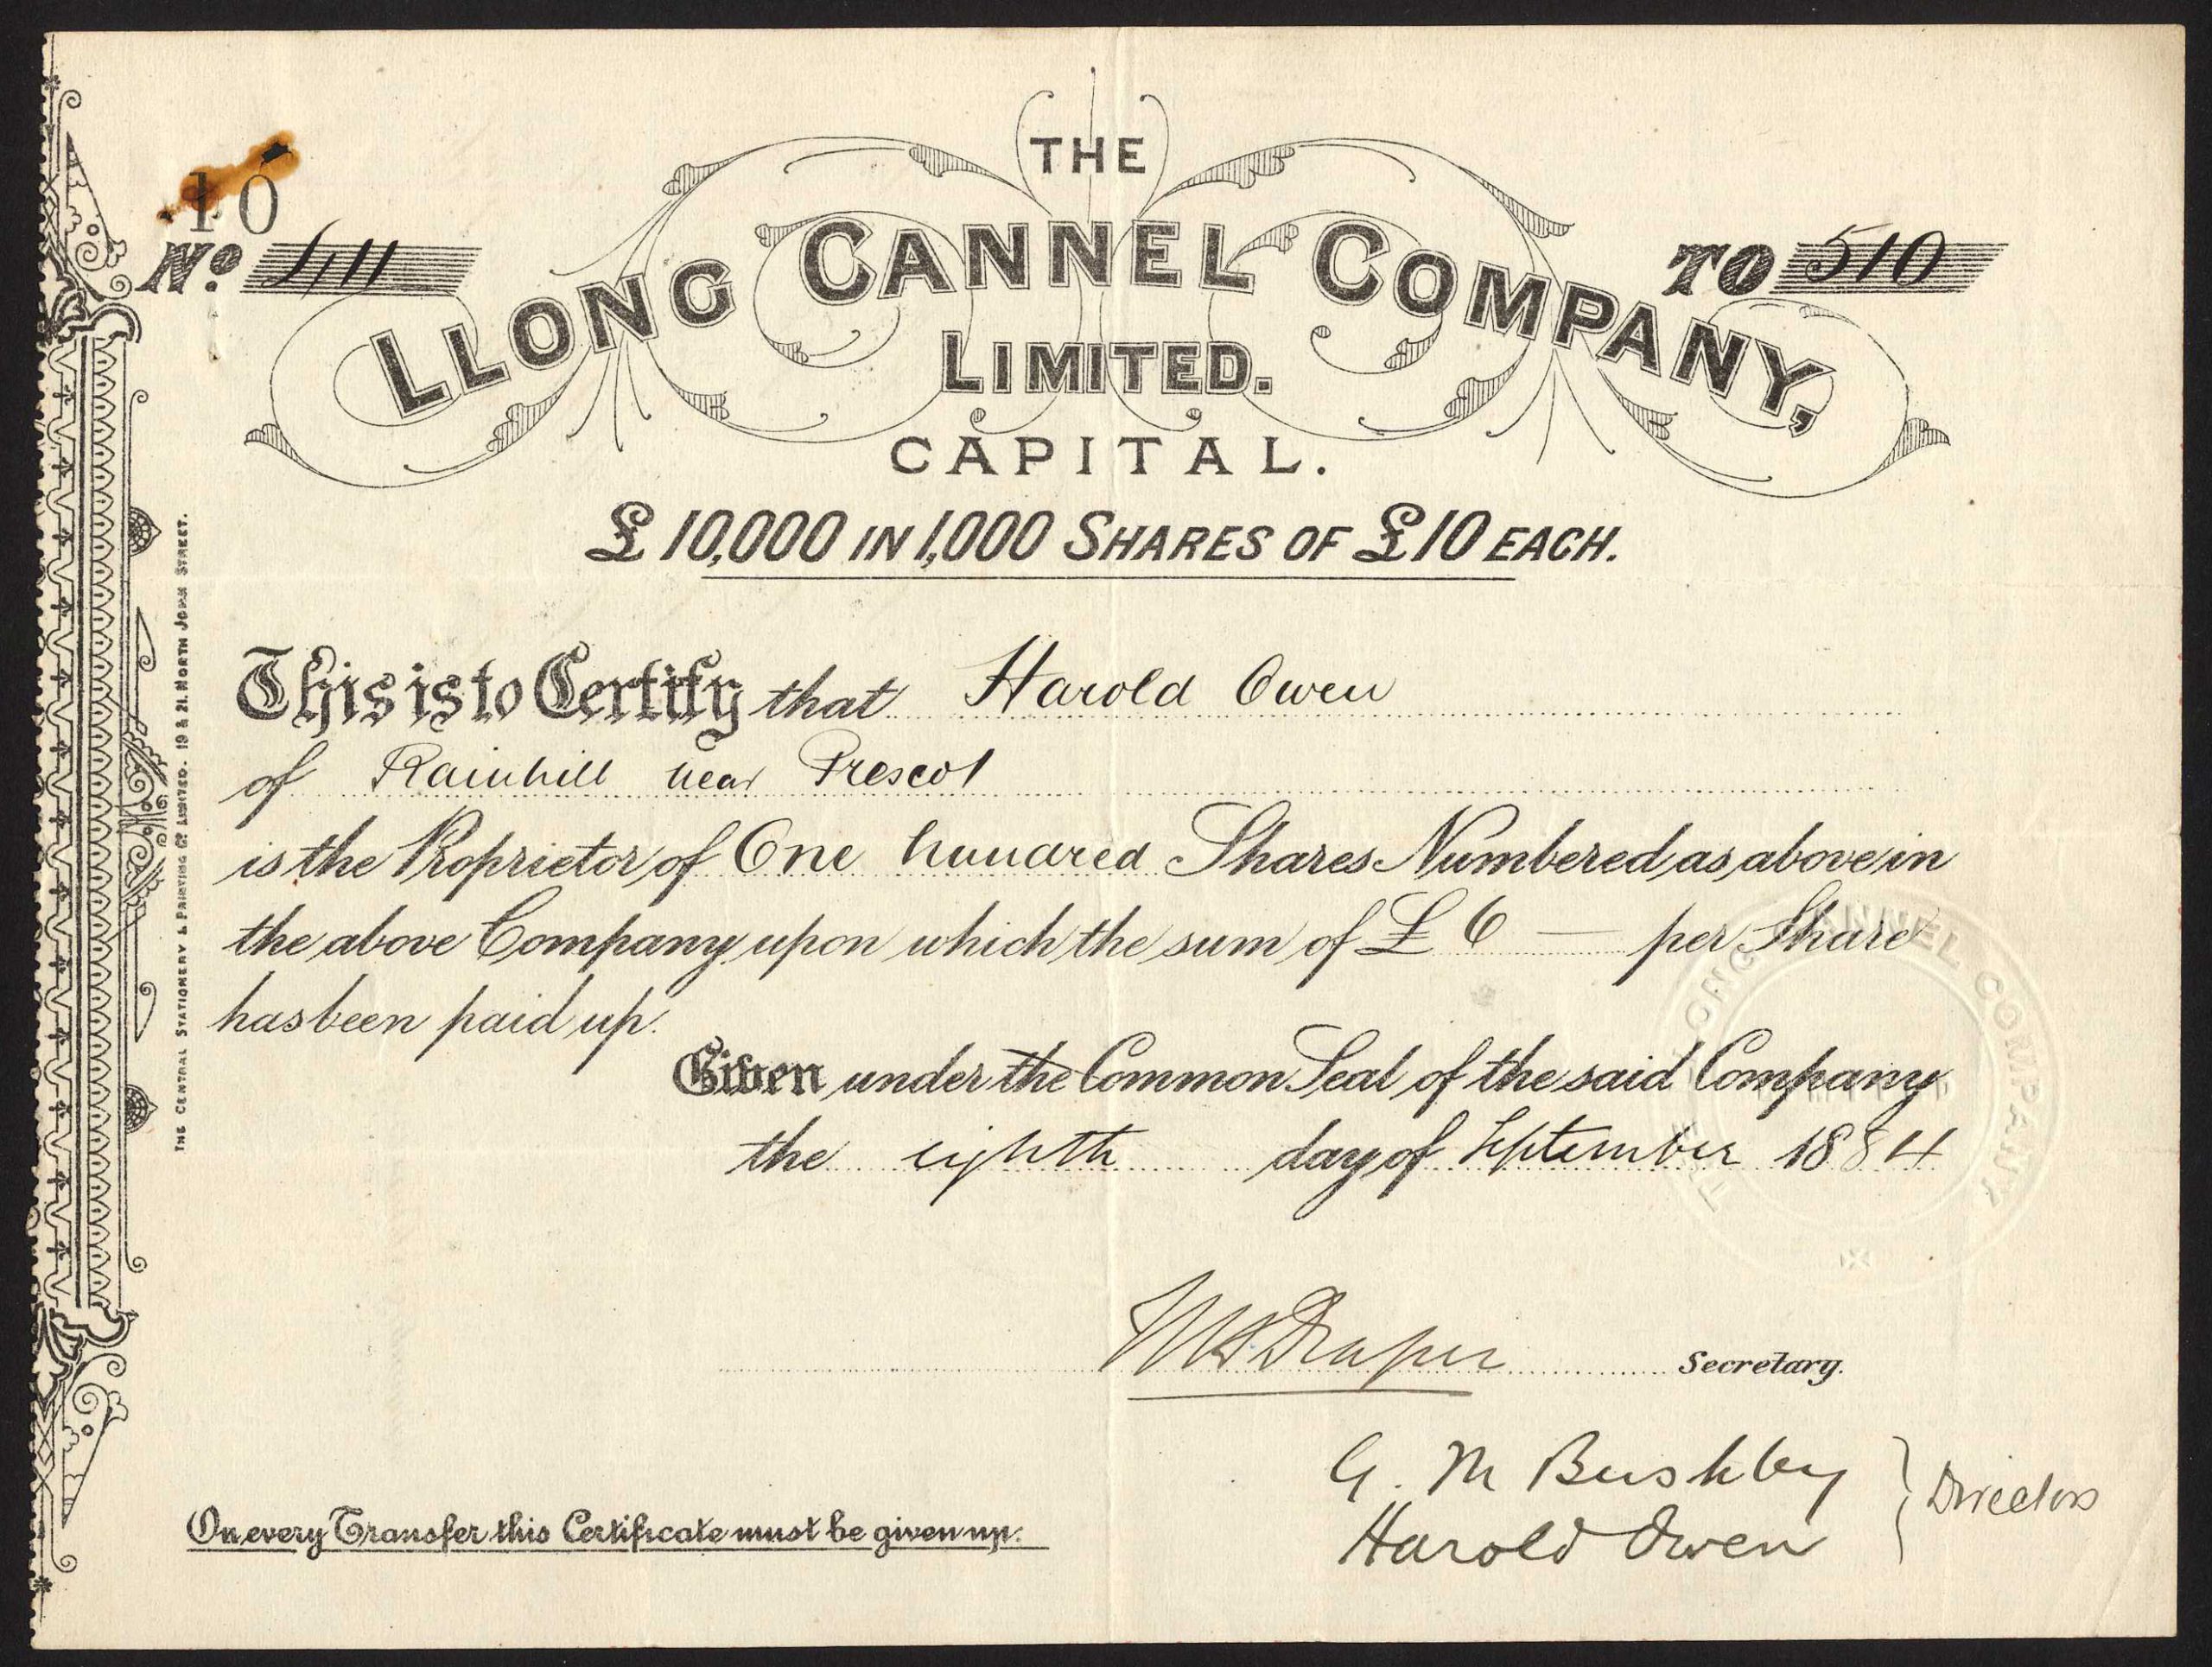 THE
LLONG CANNEL COMPANY,
LIMITED.
10
No. 411 TO 510
CAPITAL.
£10,000 IN 1,000 SHARES OF £10 EACH.
This is to Certify that Harold Owen
of Rainhill near Prescot
is the Proprietor of One hundred Shares Numbered as above in
the above Company upon which the sum of £ 6 — per Share
has been paid up.
Given under the Common Seal of the said Company
the eighth day of September 1884
Draper Secretary.
G. M Bushby
Harold Owen } Directors
On every Transfer this Certificate must be given up.
THE CENTRAL STATIONERY & PRINTING Co LIMITED. 19 & 21. NORTH JOHN STREET.
THE LLONG CANNEL COMPANY
LIMITED